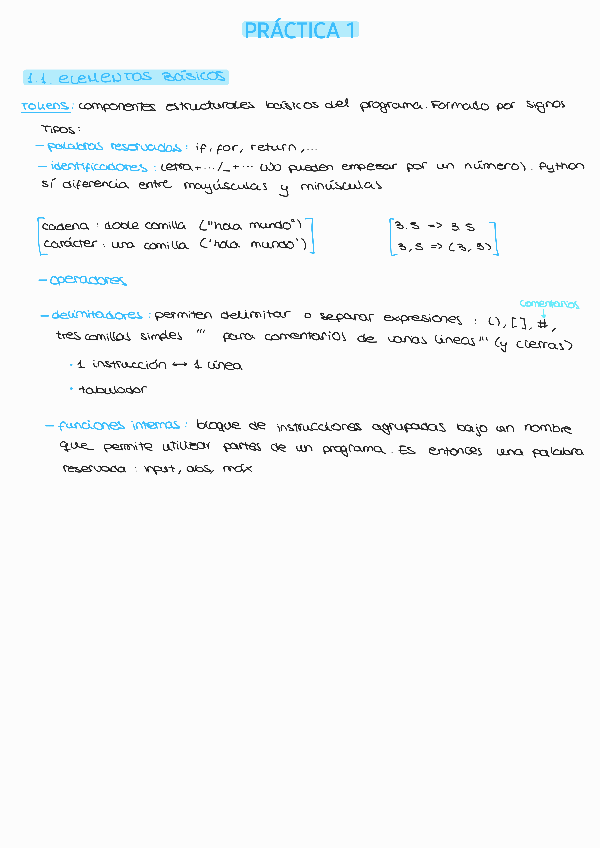 PRÁCTICA 1
1.1. ELEMENTOS BÁSICOS
Tokens: componentes estructurales básicos del programa. Formado por signos
Tipos:
- palabras reservadas: if, for, return, ...
- identificadores: letra + .../_ + ... (No pueden empezar por un número). Python
sí diferencia entre mayúsculas y minúsculas
cadena: doble comilla ("hola mundo")
carácter: una comilla ('hola mundo')
3.5 => 3.5
3,5 => (3, 5)
- operadores
comentarios
- delimitadores: permiten delimitar o separar expresiones: (), [], #,
tres comillas simples ''' para comentarios de varias líneas ''' (y cierras)
· 1 instrucción ↔ 1 línea
· tabulador
- funciones internas: bloque de instrucciones agrupadas bajo un nombre
que permite utilizar partes de un programa. Es entonces una palabra
reservada: input, abs, máx